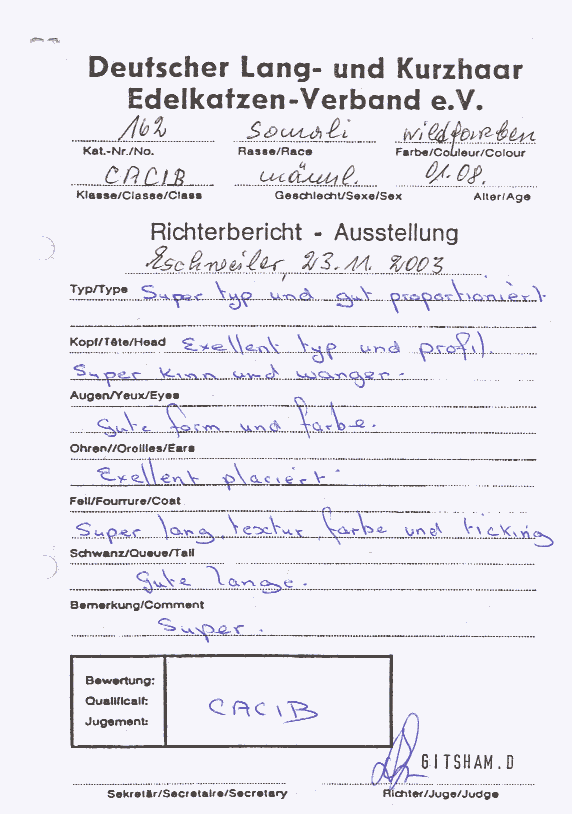 Deutscher Lang- und Kurzhaar
Edelkatzen-Verband e.V.
162 Somali wildfarben
Kat.-Nr./No. Rasse/Race Farbe/Couleur/Colour
CACIB männl. 01.08.
Klasse/Classe/Class Geschlecht/Sexe/Sex Alter/Age
Richterbericht - Ausstellung
Eschweiler, 23.11.2003
Typ/Type Super typ und gut proportioniert
Kopf/Tête/Head Exellent typ und profil.
Super Kinn und wanger.
Augen/Yeux/Eyes
Gute form und farbe.
Ohren//Oroilles/Ears
Exellent placiert.
Fell/Fourrure/Coat
Super lang, textur farbe und ticking
Schwanz/Queue/Tail
Gute lange.
Bemerkung/Comment
Super.
Bewertung:
Qualificatif:
Jugement:
CACIB
GITSHAM.D
Sekretär/Secretaire/Secretary Richter/Juge/Judge